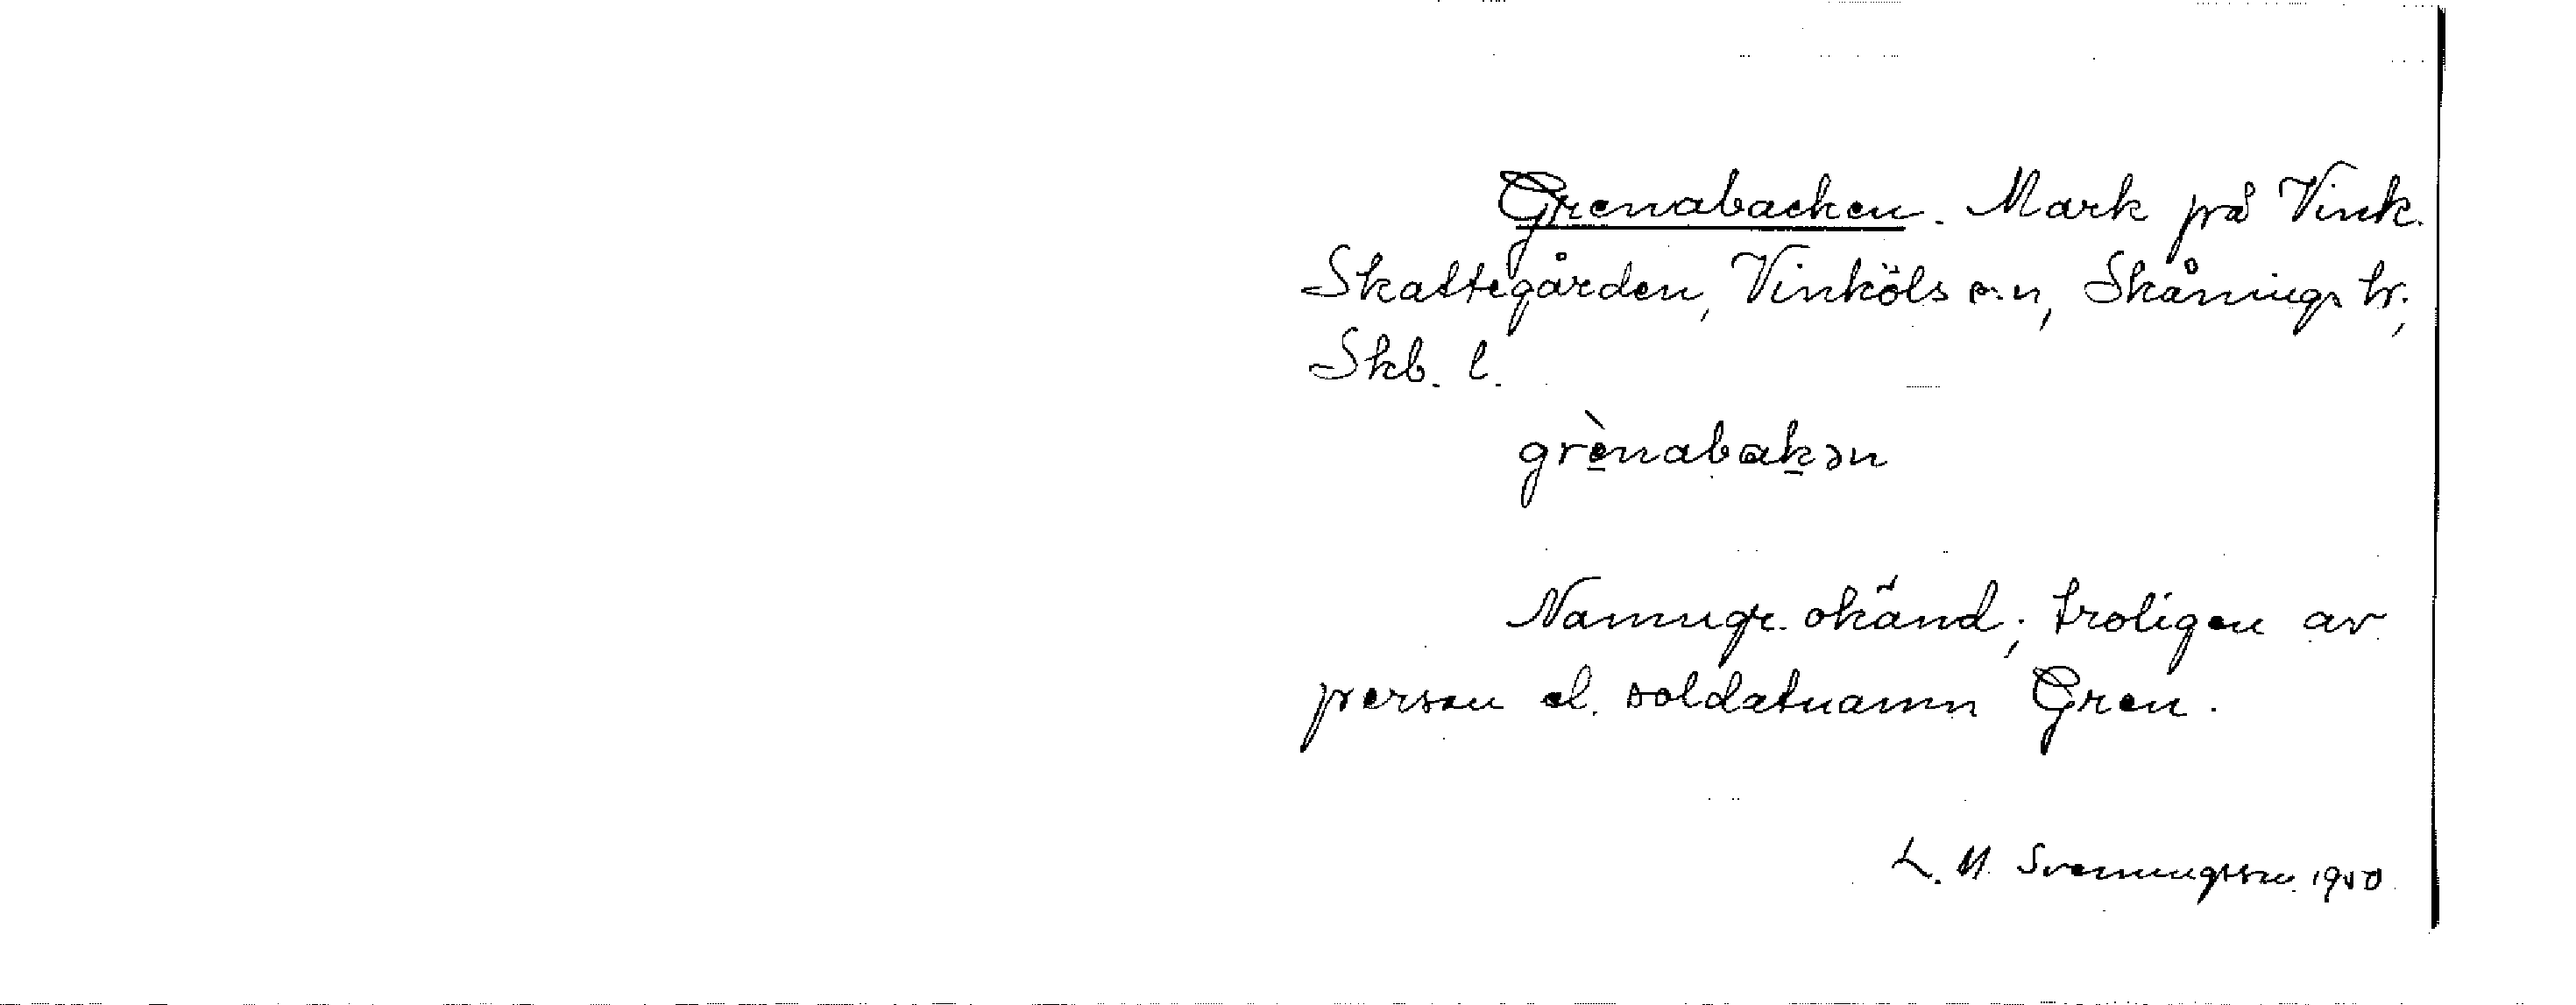 Grenabacken. Mark på Vink.
Skattegården, Vinköls s:n, Skånings hr,
Skb. l.
grènabakən
Namngr. okänd; troligen av
person el. soldatnamn Gren.
L. M. Svenningsson 1950